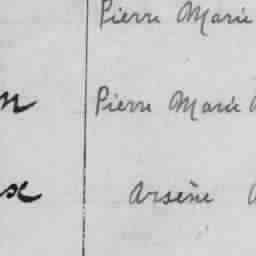 Pierre Marie
n Pierre Marie
x Arsène